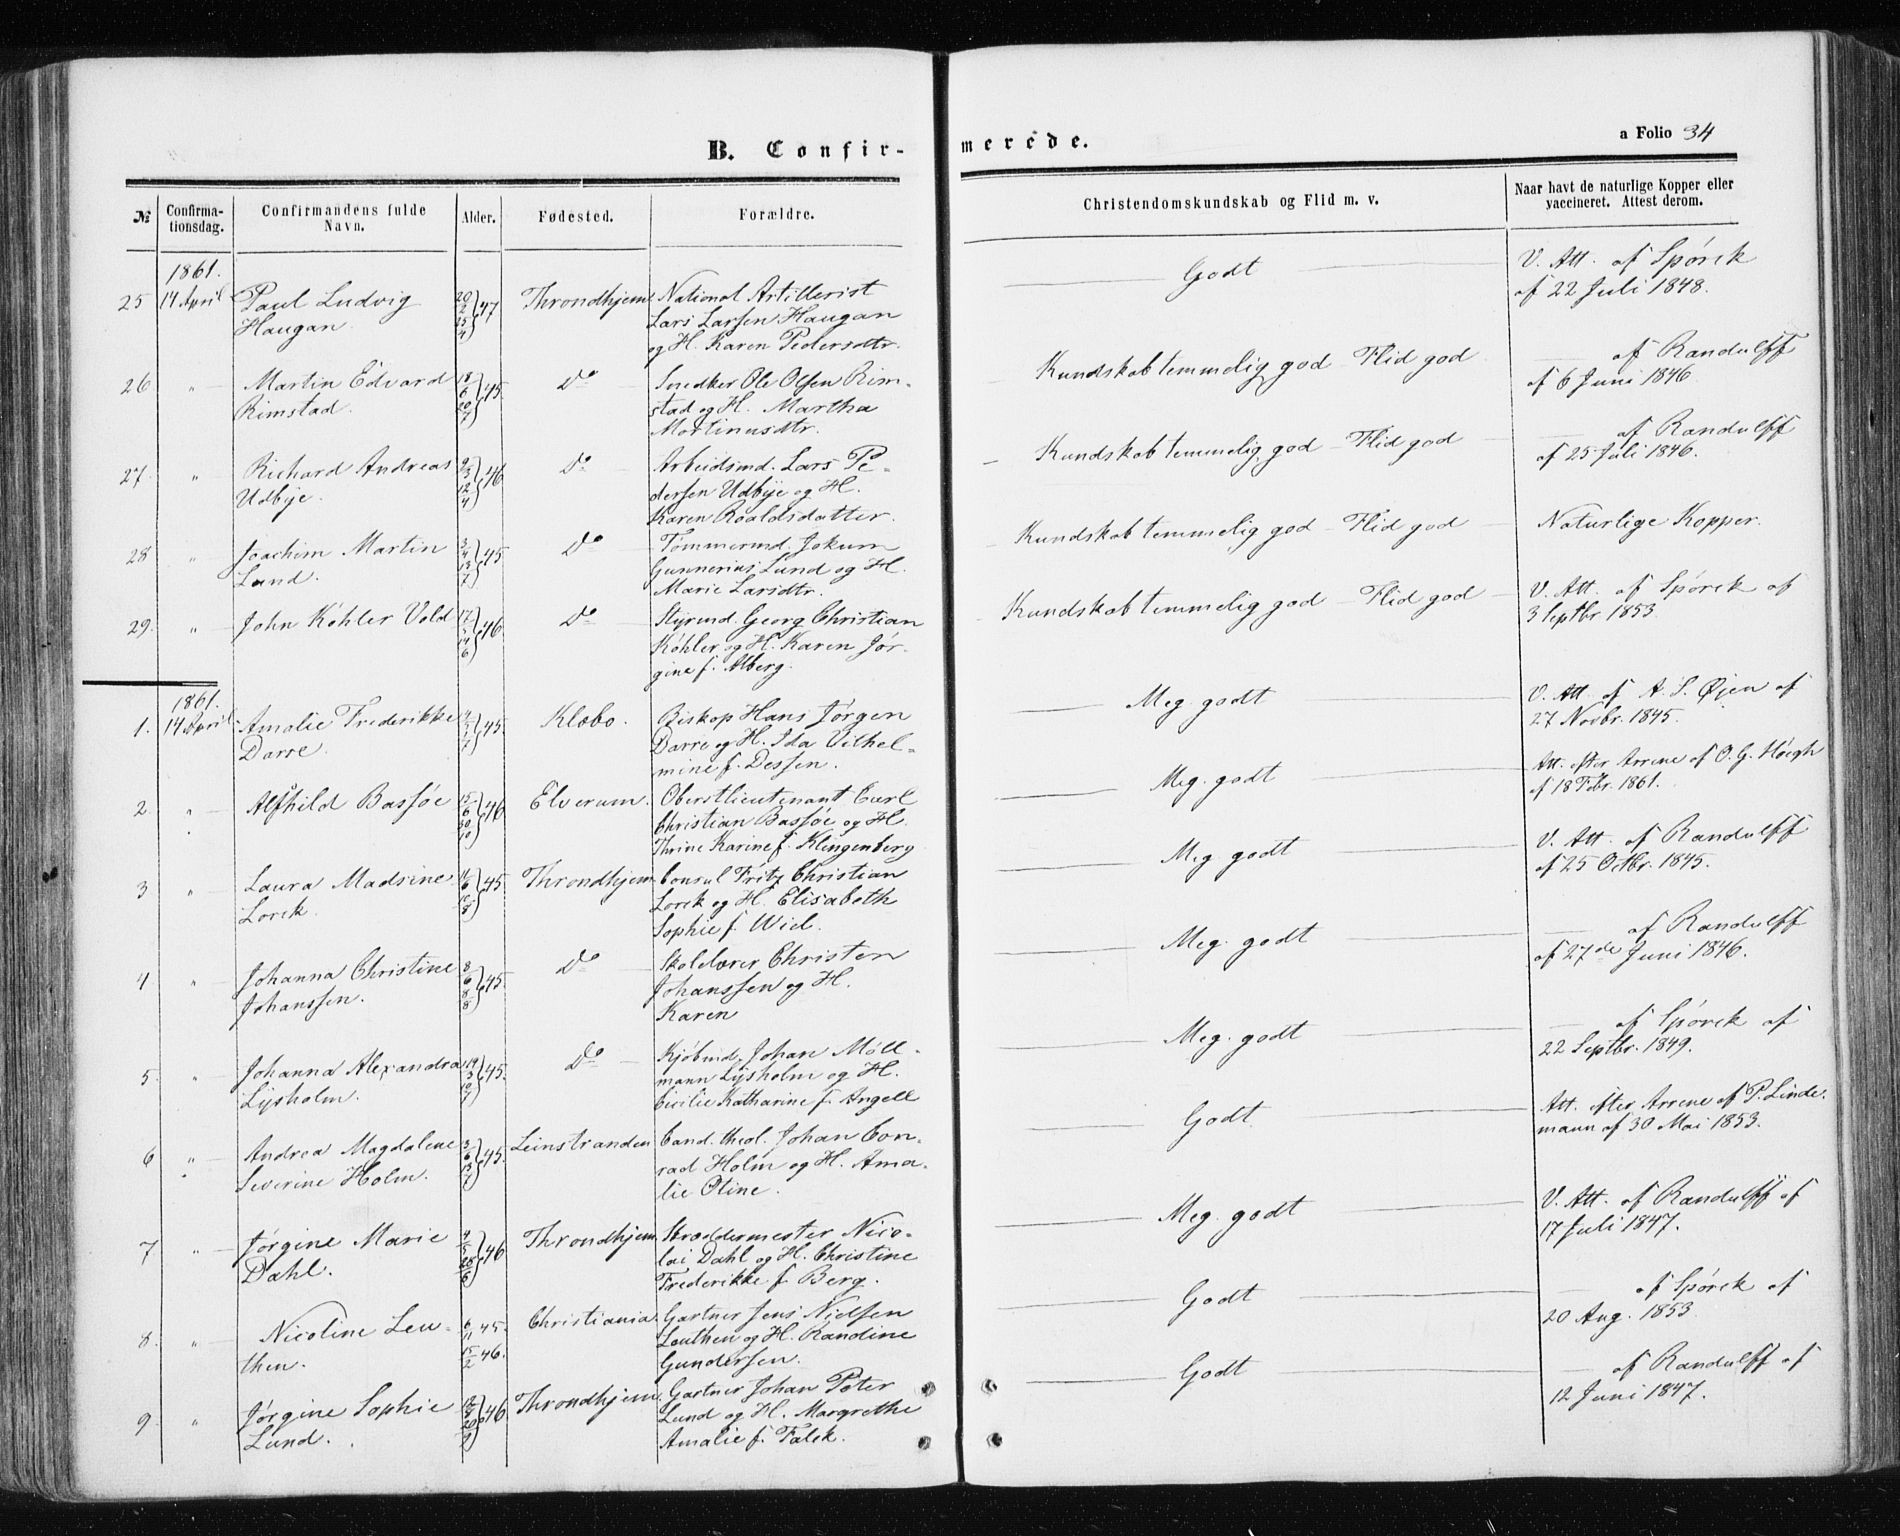 B. Confirmerede.
a Folio 34
№ Confirmationsdag. Confirmandens fulde Navn. Alder. Fødested. Forældre. Christendomskundskab og Flid m. v. Naar havt de naturlige Kopper eller vaccineret. Attest derom.
1861.
25 14 April Paul Ludvig 20/2 47 Throndhjem National Artillerist Godt V. Att. af Spørck
Haugan. 25/4 Lars Larsen Haugan af 22 Juli 1848.
og H. Karen Pedersdtr.
26 " Martin Edvard 18/6 45. Do Snedker Ole Olsen Rim- Kundskab temmelig god - Flid god — af Randulff
Rimstad. 20/7 stad og H. Martha af 6 Juni 1846.
Mortinusdtr.
27. " Richard Andreas 9/3 46 Do Arbeidsmd. Lars Pe- Kundskab temmelig god - Flid god — af Randulff
Udbye. 12/4 dersen Udbye og H. af 25 Juli 1846.
Karen Roaldsdatter.
28 " Joachim Martin 3/4 45 Do Tømmermd. Jokum Kundskab temmelig god - Flid god — Naturlige Kopper.
Lund. 13/7 Gunnerius Lund og H.
Marie Larsdtr.
29. " John Köhler Vold 17/5 46. Do Styrmd. Georg Christian Kundskab temmelig god - Flid god — V. Att. af Spørck af
14/6 Köhler og H. Karen Jør- 3 Septbr 1853.
gine f. Alberg.
1861.
1. 14 April Amalie Frederikke 45. Klæbo. Biskop Hans Jørgen Meg. godt V. Att. af A. S. Øjen af
Darre. Darre og H. Ida Vilhel- 27 Novbr. 1845.
mine f. Dessen.
2. " Alfhild Bassøe 15/6 46 Elverum. Oberstlieutenant Carl Meg. godt Att. efter Arrene af O. G. Höegh
30/10 Christian Bassøe og H. af 18 Febr. 1861.
Thrine Karine f. Klingenberg
3 " Laura Madsine 16/6 45 Throndhjem Consul Fritz Christian Meg. godt V. Att. af Randulff
Lorck. 10/8 Lorck og H. Elisabeth af 25 Octbr. 1845.
Sophie f. Wid.
4 " Johanna Christine 8/6 45. Do Skolelærer Christen Meg. godt — af Randulff
Johanssen. 8/8 Johanssen og H. af 27de Juni 1846.
Karen
5. " Johanna Alexandra 19/3 45. Do Kjøbmd. Johan Möll- Meg. godt — af Spørck af
Lysholm. mann Lysholm og H. 22 Septbr. 1849.
Cicilie Katharine f. Angell
6 " Andrea Magdalene 3/6 45. Leinstranden Cand. theol. Johan Con- Godt Att. efter Arrene af P. Linde-
Severine Holm. 13/7 rad Holm og H. Ama- mann af 30 Mai 1853.
lie Oline.
7 " Jørgine Marie 4/5 46 Throndhjem Skræddermester Nico- Meg. godt V. Att. af Randulff af
Dahl. 28/6 lai Dahl og H. Christine 17 Juli 1847.
Frederikke f. Berg.
8. " Nicoline Leu- 6/11 45. Christiania. Gartner Jens Nielsen Godt — af Spørck af
then. 15/2 46. Leuthen og H. Randine 20 Aug. 1853.
Gundersen.
9. " Jørgine Sophie 46 Throndhjem. Gartner Johan Peter Godt — af Randulff af
Lund. Lund og H. Margrethe 12 Juni 1847.
Amalie f. Falck.